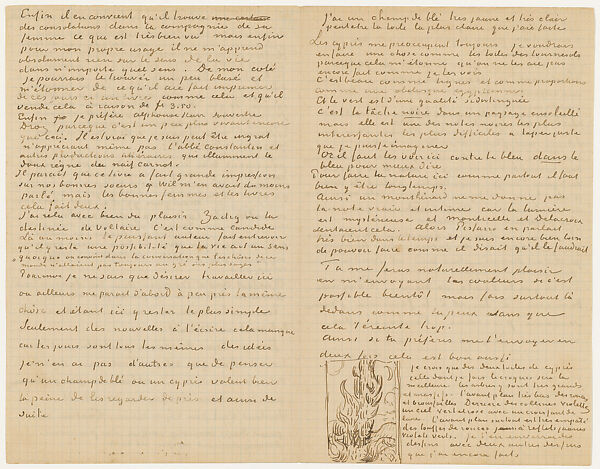 Enfin il en convient qu'il trouve
des consolations dans la compagnie de sa
femme ce qui est très bien vu mais enfin
pour mon propre usage il ne m'apprend
absolument rien sur le sens de la vie
dans n'importe quel sens. De mon coté
je pourrais le trouver un peu blasé et
m'étonner de ce qu'il aie fait imprimer
de ces jours ci un livre comme cela et qu'il
vende cela à raison de fr 3.50.
Enfin je préfère Alphonse Karr Souvestre
Droz parceque c'est un peu plus vivant encore
que ceci. Il est vrai que je suis peut être ingrat
n'appréciant même pas l'abbé Constantin et
autres productions littéraires qui illuminent le
doux règne du naif Carnot.
Il parait que ce livre a fait grande impression
sur nos bonnes soeurs Wil m'en avait du moins
parlé mais les bonnes femmes et les livres
cela fait deux.
J'ai relu avec bien du plaisir Zadig ou la
destinée de Voltaire c'est comme Candide
Là au moins le puissant auteur fait entrevoir
qu'il reste une possibilité que la vie ait un sens
quoique on convint dans la conversation que les choses de ce
monde n'allaient pas toujours au gré des plus sages
Pour moi je ne sais que désirer travailler ici
ou ailleurs me parait d'abord à peu près la même
chose et étant ici y rester le plus simple
Seulement des nouvelles à t'écrire cela manque
car les jours sont tous les mêmes des idées
je n'en ai pas d'autres que de penser
qu'un champ de blé ou un cyprès valent bien
la peine de les regarder de près et ainsi de
suite
J'ai un champ de blé très jaune et très clair
peut être la toile la plus claire que j'aie faite
Les cyprès me préoccupent toujours je voudrais
en faire une chose comme les toiles des tournesols
parceque cela m'étonne qu'on ne les aie pas
encore fait comme je les vois
C'est beau comme lignes et comme proportions
comme une obelisque egyptienne.
Et le vert est d'une qualité si distinguée
C'est la tâche noire dans un paysage ensoleillé
mais elle est une des notes noires les plus
interessantes les plus difficiles à taper juste
que je puisse imaginer
Or il faut les voir ici contre le bleu dans le
bleu pour mieux dire
Pour faire la nature ici comme partout il faut
bien y être longtemps.
Ainsi un Monthénard ne me donne pas
la note vraie et intime car la lumière
est mystérieuse et Monticelli et Delacroix
sentaient cela. Alors Pissarro en parlait
très bien dans le temps et je suis encore bien loin
de pouvoir faire comme il disait qu'il le faudrait
Tu me feras naturellement plaisir
en m'envoyant les couleurs si c'est
possible bientôt mais fais surtout là
dedans comme tu peux sans que
cela t'éreinte trop.
Ainsi si tu préfères me l'envoyer en
deux fois cela est bon aussi
Je crois que des deux toiles de cyprès
celle dont je fais le croquis sera la
meilleure les arbres y sont très grands
et massifs. l'avant plan très bas des ronces
et broussailles Derrière des collines violettes
un ciel vert et rose avec un croissant de
lune L'avant plan surtout est très empâté
des touffes de ronces à reflets jaunes
violets verts. Je t'en enverrai des
dessins avec deux autres dessins
que j'ai encore faits